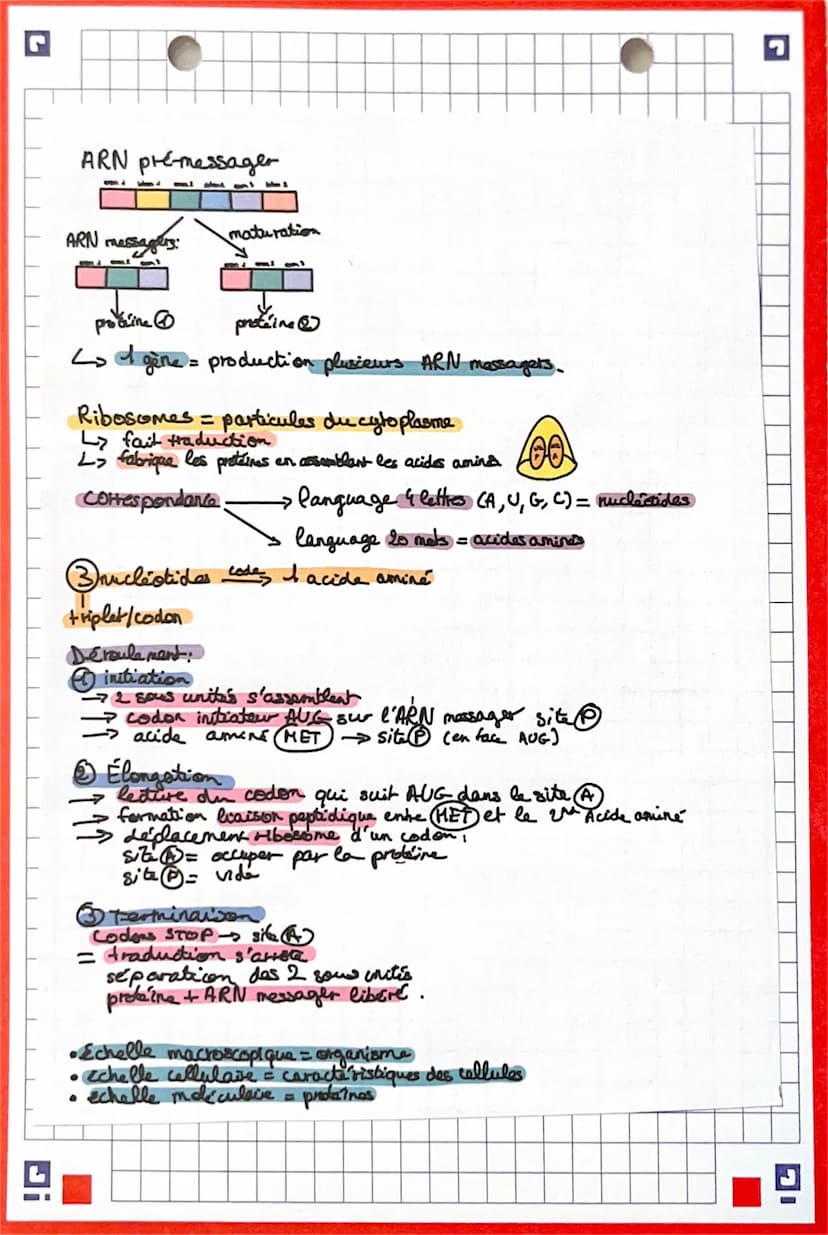 ARN pré-messager
exon 1 intron 1 exon 2 intron 2 exon 3 intron 3
ARN messagers:
maturation
protéine ①
protéine ②
↳ 1 gène = production plusieurs ARN messagers.
Ribosomes = particules du cytoplasme
↳ fait traduction
↳ fabrique les protéines en assemblant les acides aminés
Correspondance → language 4 lettres (A, U, G, C) = nucléotides
language 20 mots = acides aminés
③ nucléotides code → 1 acide aminé
triplet/codon
Déroulement:
① initiation
→ 2 sous unités s'assemblent
→ codon initiateur AUG sur l'ARN messager site Ⓟ
→ acide aminé (MET) → site Ⓟ (en face AUG)
② Élongation
→ lecture du codon qui suit AUG dans le site Ⓐ
→ formation liaison peptidique entre (MET) et le 2nd Acide aminé
→ déplacement ribosome d'un codon:
site Ⓐ = occuper par la protéine
site Ⓟ = vide
③ Terminaison
Codons STOP → site Ⓐ
= traduction s'arrête
séparation des 2 sous unités
protéine + ARN messager libéré.
• Échelle macroscopique = organisme
• échelle cellulaire = caractéristiques des cellules
• échelle moléculaire = protéines